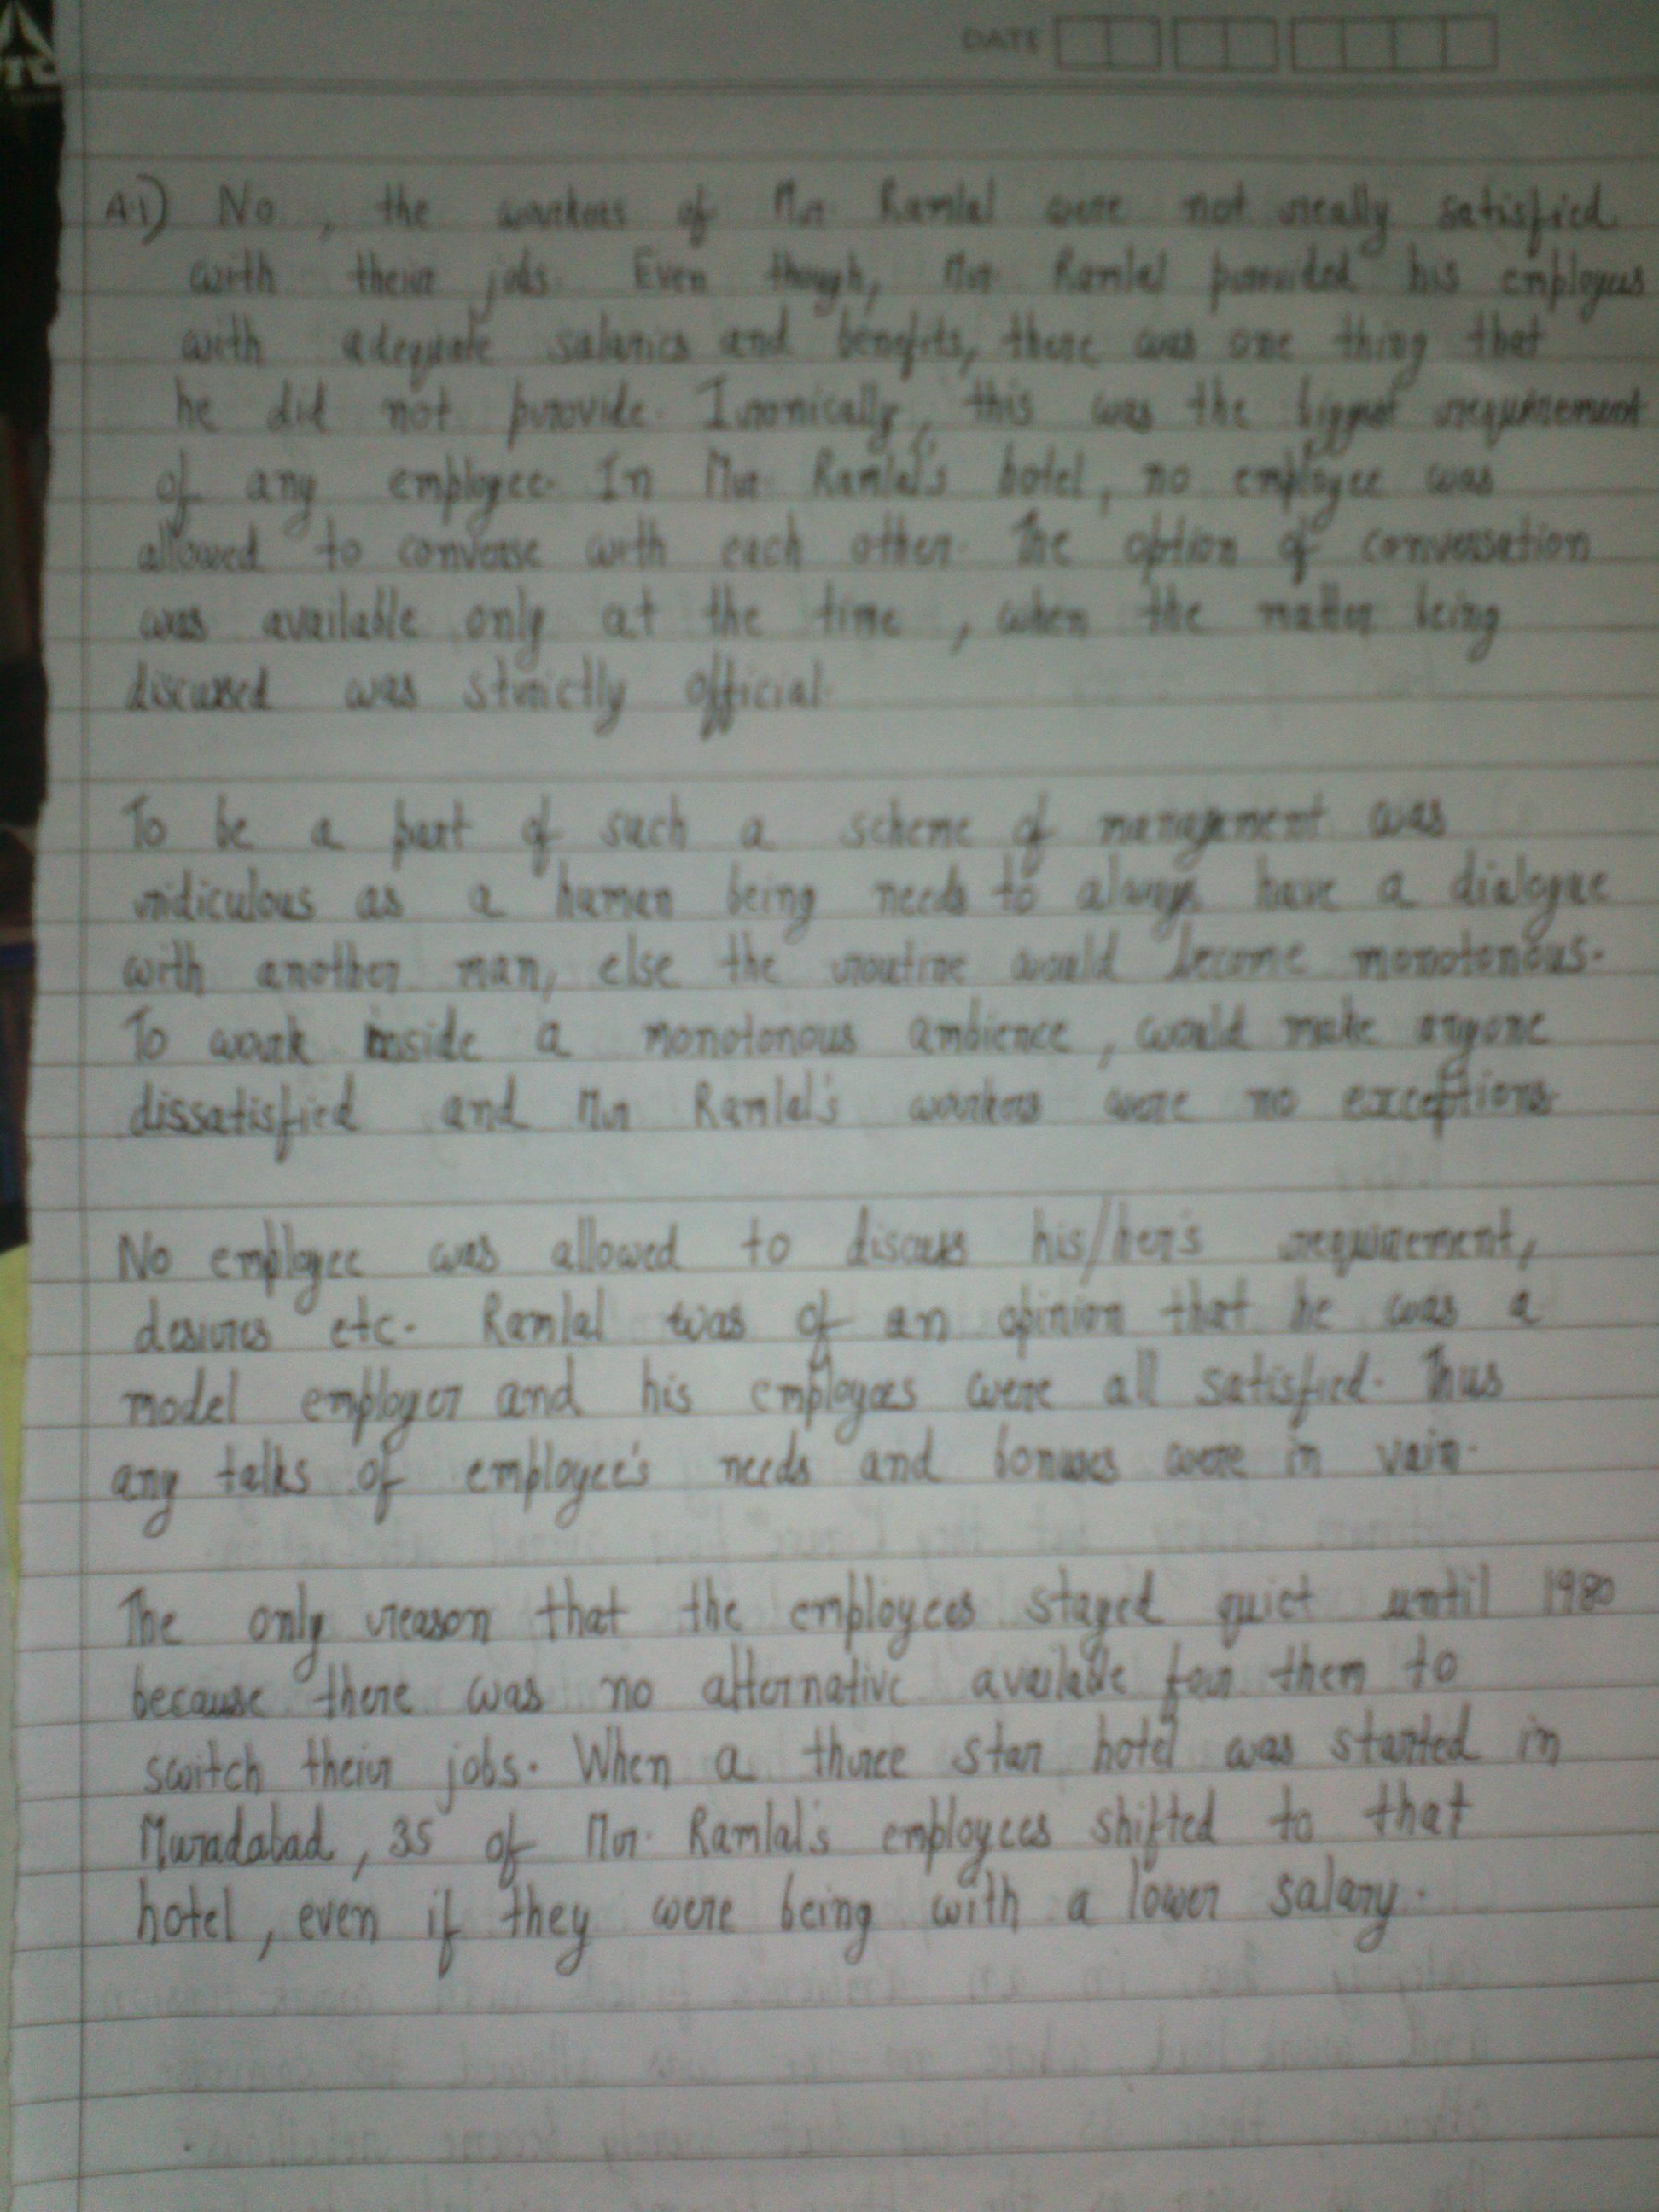 DATE
A.1) No, the workers of Mr. Ramlal were not really satisfied
with their jobs. Even though, Mr. Ramlal provided his employees
with adequate salaries and benefits, there was one thing that
he did not provide. Ironically, this was the biggest requirement
of any employee. In Mr. Ramlal's hotel, no employee was
allowed to converse with each other. The option of conversation
was available only at the time, when the matter being
discussed was strictly official.
To be a part of such a scheme of management was
ridiculous as a human being needs to always have a dialogue
with another man, else the routine would become monotonous.
To work inside a monotonous ambience, would make anyone
dissatisfied and Mr Ramlal's workers were no exceptions
No employee was allowed to discuss his/her's requirement,
desires etc. Ramlal was of an opinion that he was a
model employer and his employees were all satisfied. Thus
any talks of employee's needs and bonuses were in vain.
The only reason that the employees stayed quiet until 1980
because there was no alternative available for them to
switch their jobs. When a three star hotel was started in
Muradabad, 35 of Mr. Ramlal's employees shifted to that
hotel, even if they were being with a lower salary.